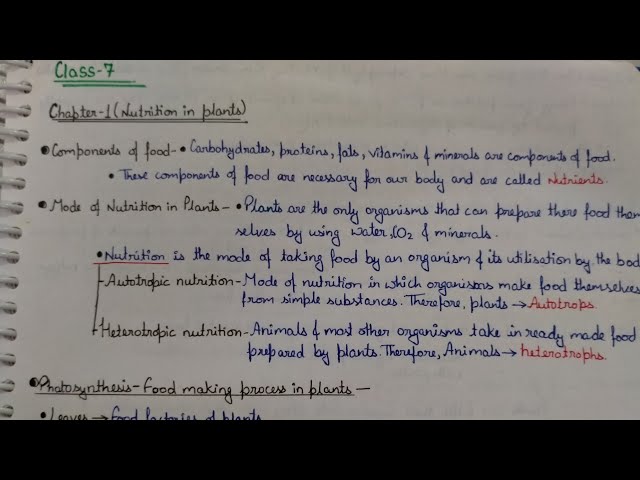 Class-7
Chapter-1 (Nutrition in plants)
• Components of food- • Carbohydrates, proteins, fats, vitamins & minerals are components of food.
• These components of food are necessary for our body and are called Nutrients.
• Mode of Nutrition in Plants- • Plants are the only organisms that can prepare there food them
selves by using water, CO2 & minerals.
• Nutrition is the mode of taking food by an organism & its utilisation by the bod
Autotropic nutrition- Mode of nutrition in which organisms make food themselves
from simple substances. Therefore, plants → Autotrops.
Heterotropic nutrition- Animals & most other organisms take in ready made food
prepared by plants. Therefore, Animals → heterotrophs.
• Photosynthesis- Food making process in plants —
• Leaves → Food factories of plants